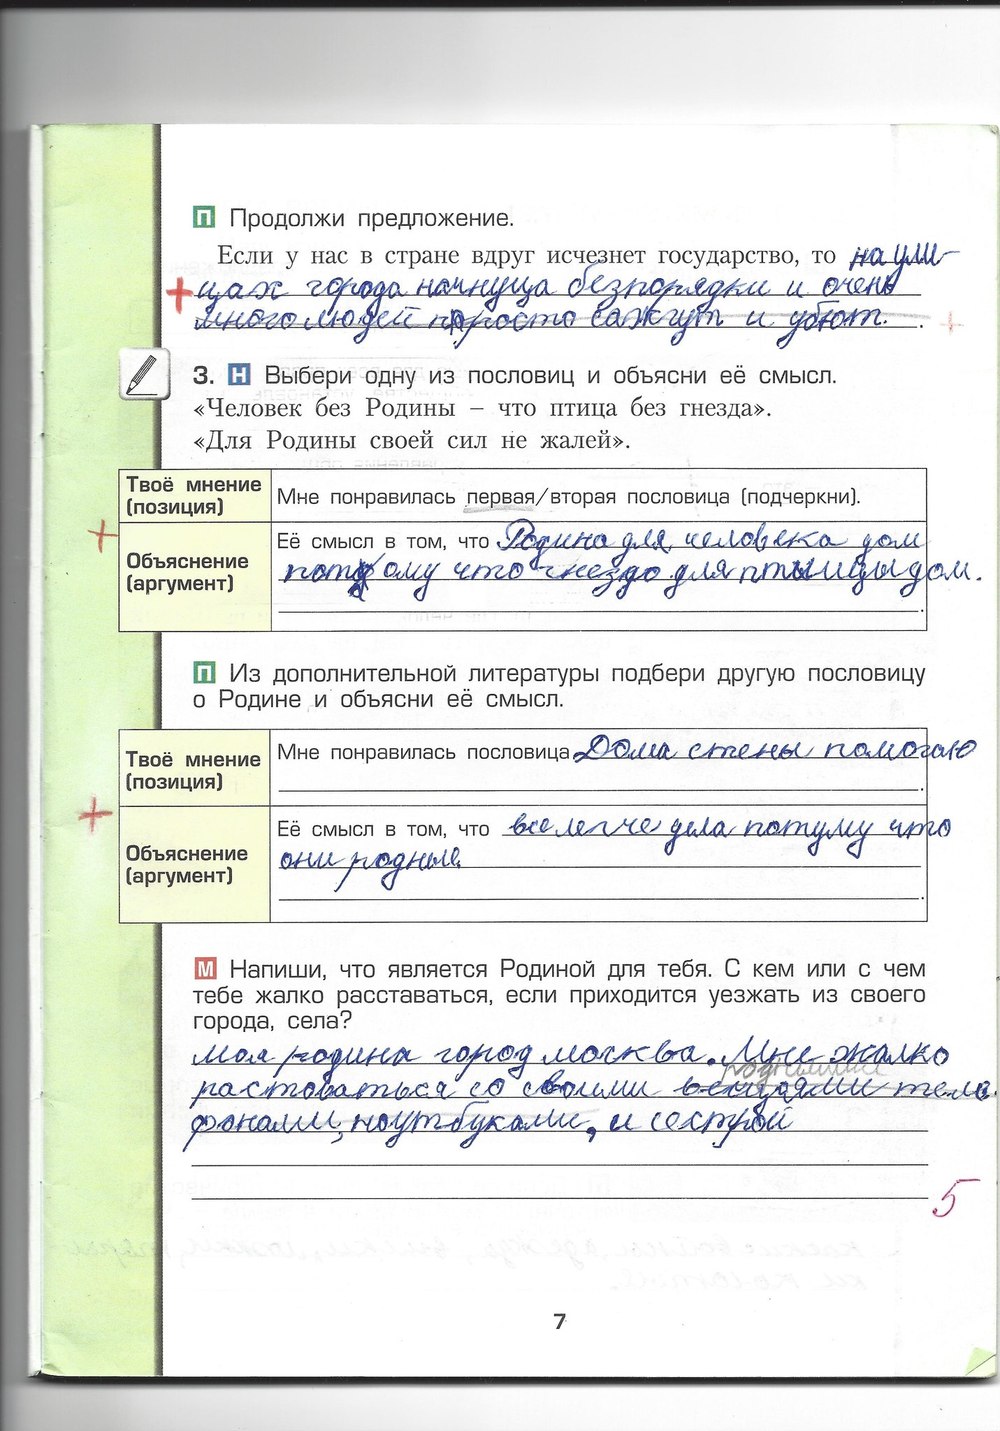 П Продолжи предложение.
Если у нас в стране вдруг исчезнет государство, то на ули-
цах города начнуца безпорядки и очень
много людей просто сажгут и убют.
3. Н Выбери одну из пословиц и объясни её смысл.
«Человек без Родины – что птица без гнезда».
«Для Родины своей сил не жалей».
Твоё мнение (позиция)
Мне понравилась первая/вторая пословица (подчеркни).
Объяснение (аргумент)
Её смысл в том, что Родина для человека дом
потому что гнездо для птицы дом.
П Из дополнительной литературы подбери другую пословицу
о Родине и объясни её смысл.
Твоё мнение (позиция)
Мне понравилась пословица Дома стены помогаю
Объяснение (аргумент)
Её смысл в том, что все легче дела потуму что
они родные.
М Напиши, что является Родиной для тебя. С кем или с чем
тебе жалко расставаться, если приходится уезжать из своего
города, села?
моя родина город москва. Мне жалко
растоваться со своими вещями теле-
фонами, ноутбуками, и сестрой
5
7